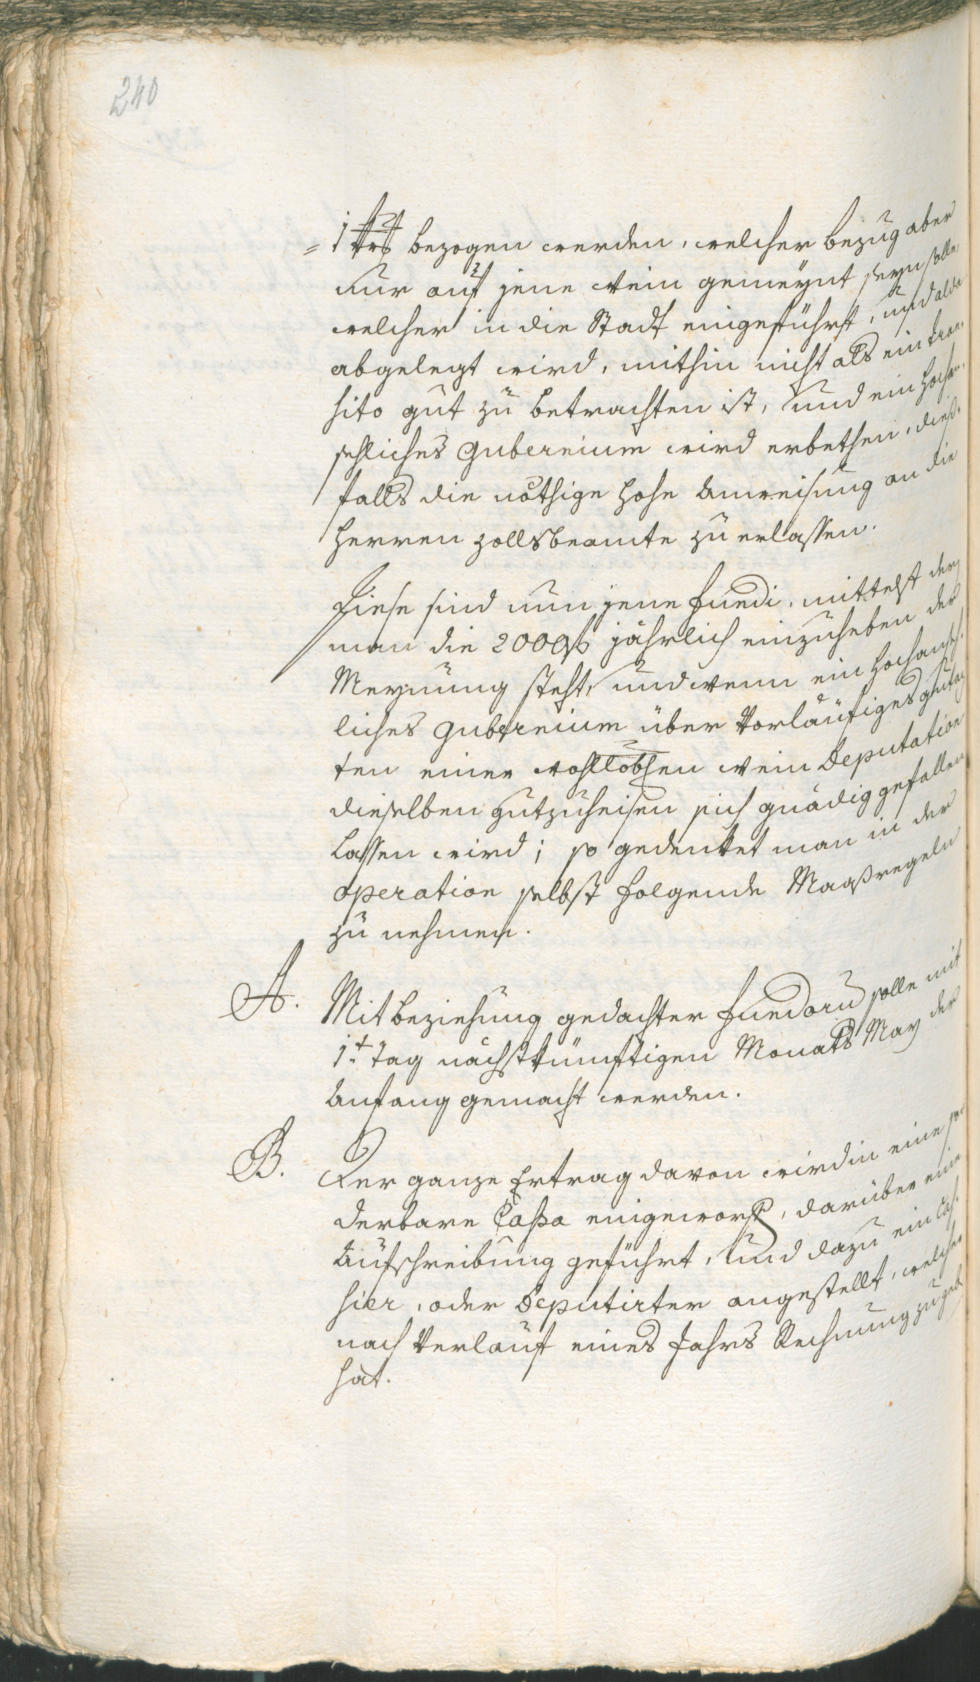 240
= 1 Xr bezogen werden, welcher bezug aber
nur auf jene Wein gemeynt seyn solle
welcher in die Stadt eingeführt, und alda
abgelegt wird, mithin nicht als ein tran
sito gut zu betrachten ist, und ein hochan-
sehliches Gubernium wird erbethen, dieß-
falls die nöthige hohe Anweisung an die
Herren Zollsbeamte zu erlassen.
Diese sind nun jene Fundi, mittelst der
man die 2000 f jährlich einzuheben der
Meynung steht, und wenn ein hochanseh-
liches Gubernium über Vorläufiges gutach
ten einer wohllöbhen Wein Deputation
dieselben gutzuheisen sich gnädig gefallen
lassen wird; so gedenket man in der
operation selbst folgende Maaßregeln
zu nehmen.
A. Mit beziehung gedachter Fundoru solle mit
1.t Tag nächstkünftigen Monats May der
Anfang gemacht werden.
B. Der ganze Ertrag davon wird in eine son
derbare Cassa eingeworf, darüber eine
Aufschreibung geführt, und dazu ein Cas-
sier, oder Deputirter angestellt, welcher
nach Verlauf eines Jahrs Rechnung zu geb
hat.